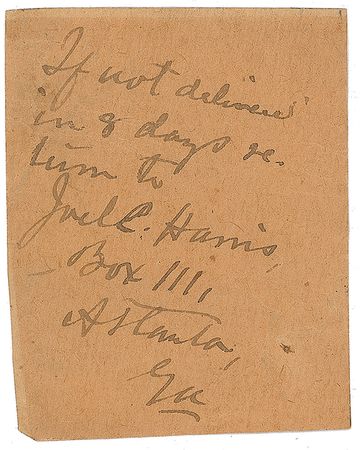 If not delivered
in 8 days re-
turn to
Joel C. Harris,
Box 111,
Atlanta,
Ga